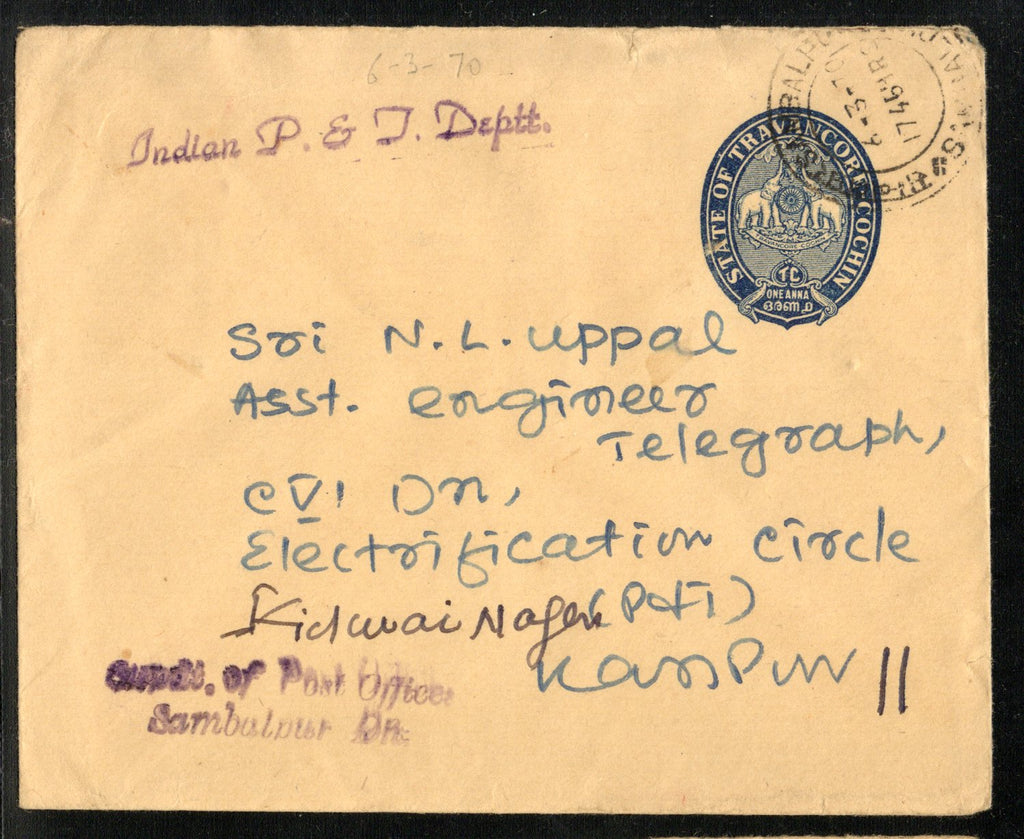 6-3-70
Indian P. & T. Deptt.
6-3-70
1745HRS
STATE OF TRAVANCORE-COCHIN
TRAVANCORE COCHIN
TC
ONE ANNA
ഒരണ
Sri N.L. Uppal
Asst. engineer
Telegraph,
CVI Dn,
Electrification circle
Kidwai Nagar (P&T)
Kanpur 11
Supdt. of Post Offices
Sambalpur Dn.